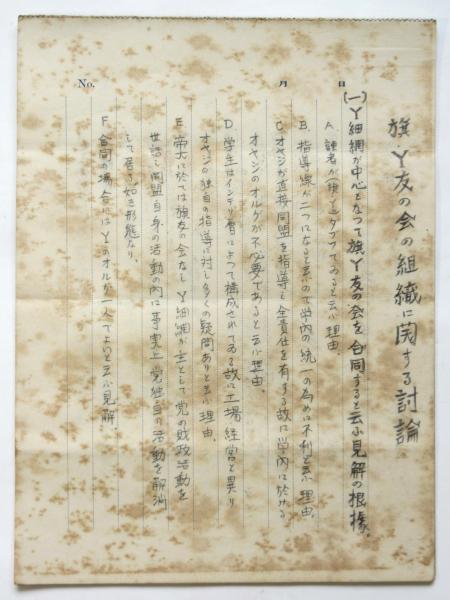 No.
月　日
旗、Y友の会の組織に関する討論
(一) Y細網が中心となつて旗Y友の会を合同すると云ふ見解の根據。
A. 読者が(旗とY)ダブつてゐると云ふ理由。
B. 指導線が二つになると云ふので学内の統一の為めに不利と云ふ理由。
C. オヤジが直接同盟を指導し全責任を有する故に学内に於ける
オヤジのオルグが不必要であると云ふ理由。
D. 学生はインテリ層によつて構成されてゐる故に工場経営と異り
オヤジの独自の指導に対し多くの疑問ありと云ふ理由。
E. 帝大に於ては旗友の会なしY細網が主として党の財政活動を
世話し同盟自身の活動の内に事実上党独自の活動を解消
して居る如き形態なり。
F. 合同の場合にはYのオルが一人でよいと云ふ見解